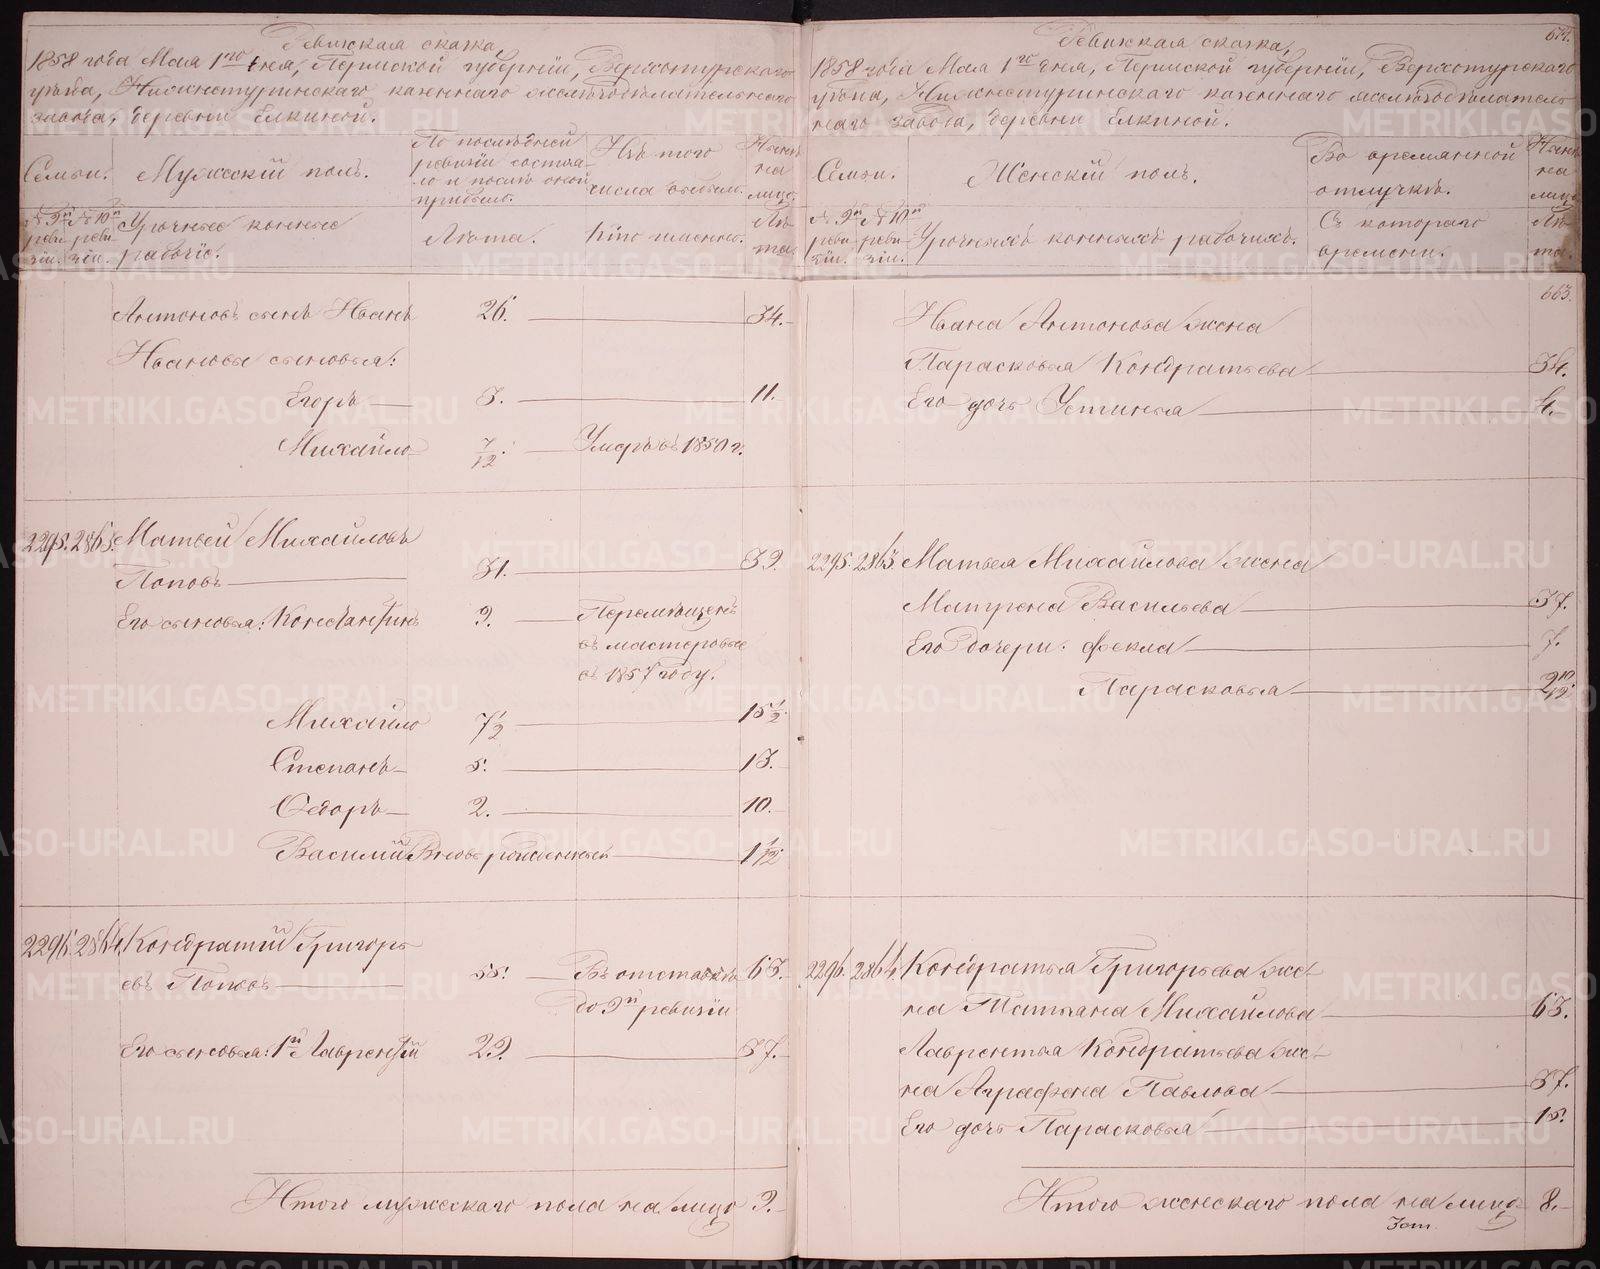 Ревижская сказка,
1858 года Мая 1го дня, Пермской губернiи, Верхотурскаго
уѣзда, Нижнетуринскаго казеннаго желѣзодѣлательнаго
завода, деревни Елкиной.
Семьи.
Мужескiй полъ.
По послѣдней
ревизiи состоя-
ло и послѣ оной
прибыло.
Изъ того
числа выбыло.
Нынѣ
на
лицо.
№ 9й реви-
зiи.
№ 10й реви-
зiи.
Урочные конные
рабочiе.
Лѣта.
Кто именно.
Лѣ-
та.
Антоновъ сынъ Иванъ 26. 34.
Ивановы сыновья:
Егоръ 3. 11.
Михайло 7/12. Умеръ въ 1850 г.
2295. 2863. Матвей Михайловъ
Поповъ 31. 39.
Его сыновья: Константинъ 9. Перемѣщенъ
въ мастеровые
въ 1857 году.
Михайло 7 1/2 15 1/2.
Степанъ 5. 13.
Ѳедоръ 2. 10.
Василий Вновь рожденный 1 1/12
2296. 2864. Кондратий Григорь-
евъ Поповъ 55. Въ отставкѣ 63.
до 9й ревизiи
Его сыновья: 1й Лаврентий 29. 37.
Итого мужескаго пола на лицо 9.
674.
Ревижская сказка,
1858 года Мая 1го дня, Пермской губернiи, Верхотурскаго
уѣзда, Нижнетуринскаго казеннаго желѣзодѣлатель-
наго завода, деревни Елкиной.
Семьи.
Женскiй полъ.
Во временной
отлучкѣ.
Нынѣ
на
лицо
№ 9й реви-
зiи.
№ 10й реви-
зiи.
Урочныхъ конныхъ рабочихъ.
Съ котораго
времени.
Лѣ-
та.
663.
Ивана Антонова жена
Парасковья Кондратьева 34.
Его дочь Устинья 4.
2295. 2863. Матвея Михайлова жена
Матрена Васильева 37.
Его дочери: Фекла 7.
Парасковья 2 10/12
2296. 2864. Кондратья Григорьева же-
на Татьяна Михайлова 63.
Лаврентья Кондратьева же-
на Аграфена Павлова 37.
Его дочь Парасковья 15.
Итого женскаго пола на лицо 8.
METRIKI.GASO-URAL.RU